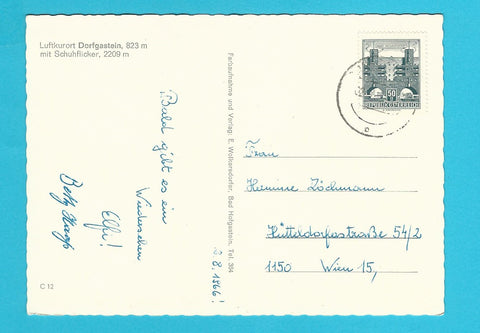 Luftkurort Dorfgastein, 823 m
mit Schuhflicker, 2209 m
Bald gibt es ein
Wiedersehn
Elfi!
C 12
Farbaufnahme und Verlag: E. Wolkersdorfer, Bad Hofgastein, Tel. 304
8. 1966!
50
REPUBLIK ÖSTERREICH
Frau
Hermine Zöchmann
Hütteldorfastraße 54/2
1150 Wien 15,